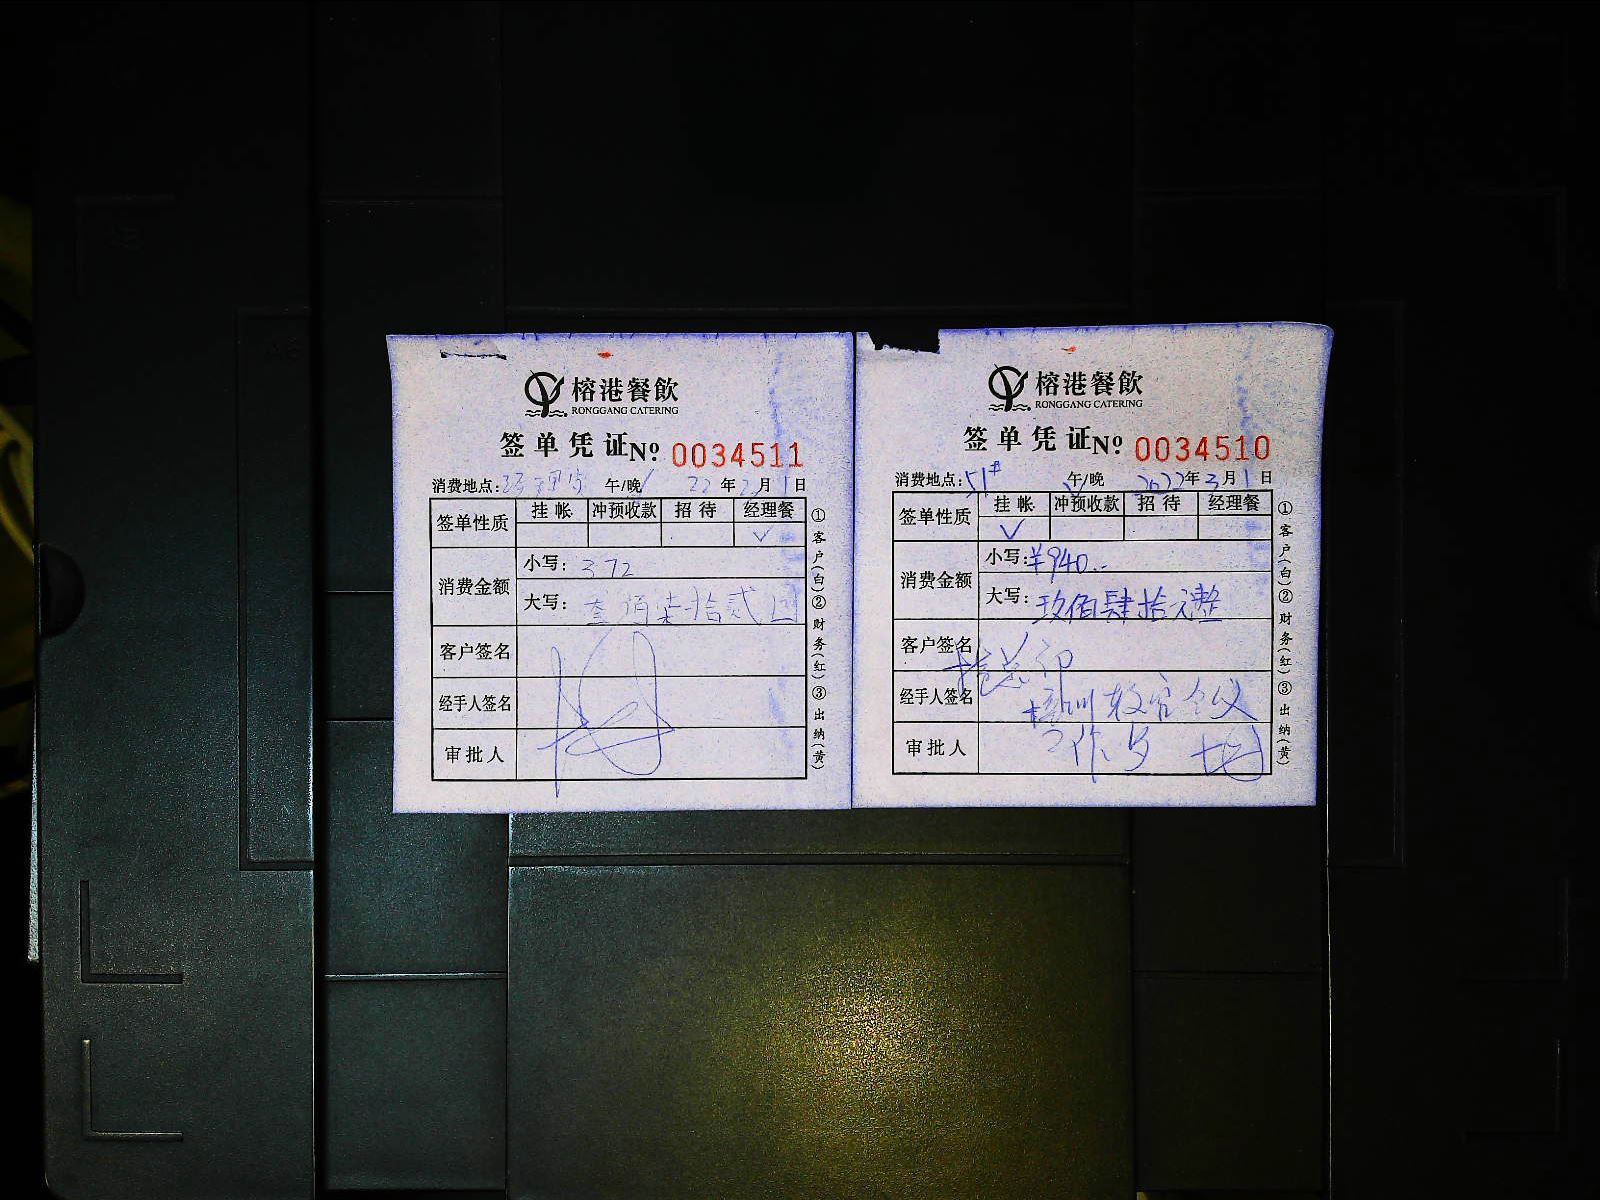 榕港餐飲
RONGGANG CATERING
签单凭证 № 0034511
消费地点: 午/晚 22年 月1日
签单性质 挂帐 冲预收款 招待 经理餐
✓
消费金额 小写: 372
大写: 叁佰柒拾贰圆
客户签名
经手人签名
审批人
①客户(白)②财务(红)③出纳(黄)
榕港餐飲
RONGGANG CATERING
签单凭证 № 0034510
消费地点: 51# 午/晚 2022年3月1日
签单性质 挂帐 冲预收款 招待 经理餐
✓
消费金额 小写: ¥940..
大写: 玖佰肆拾元整
客户签名
经手人签名 培训教官会议
审批人 工作
①客户(白)②财务(红)③出纳(黄)